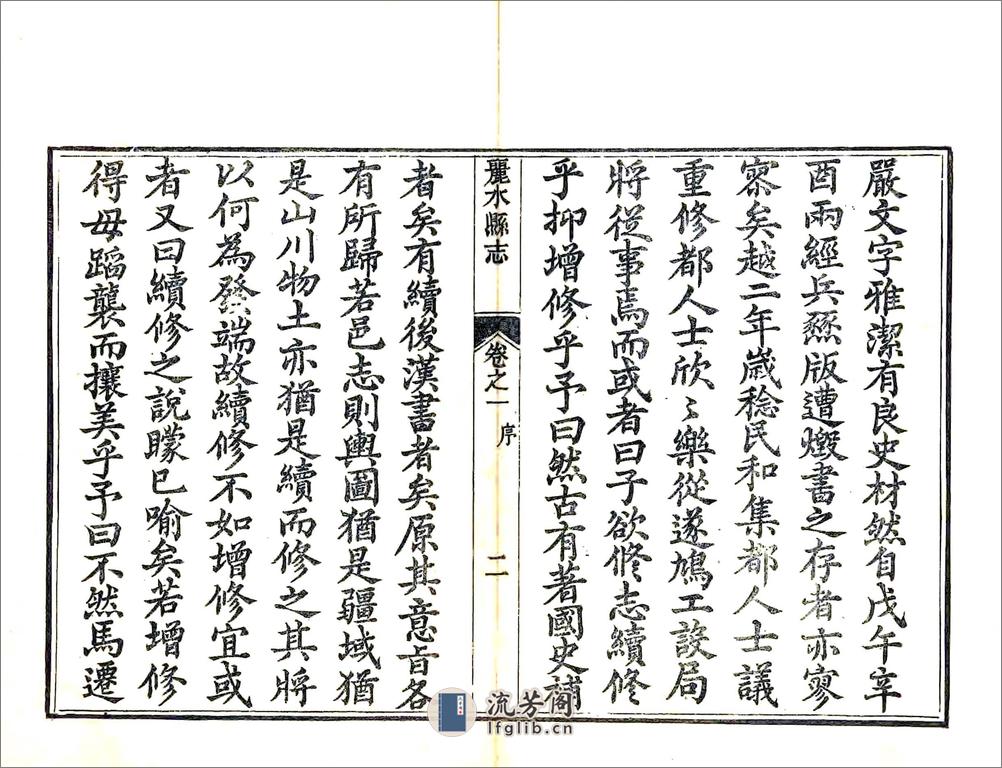 嚴文字雅潔有良史材然自戊午辛
酉兩經兵燹版遭燬書之存者亦寥
寥矣越二年歲稔民和集都人士議
重修都人士欣〻樂從遂鳩工設局
將從事焉而或者曰子欲修志續修
乎抑增修乎予曰然古有著國史補
麗水縣志
卷之一
序
二
者矣有續後漢書者矣原其意旨各
有所歸若邑志則輿圖猶是疆域猶
是山川物土亦猶是續而修之其將
以何為發端故續修不如增修宜或
者又曰續修之說矇已喻矣若增修
得毋蹈襲而攘美乎予曰不然馬遷
流芳閣
lfglib.cn